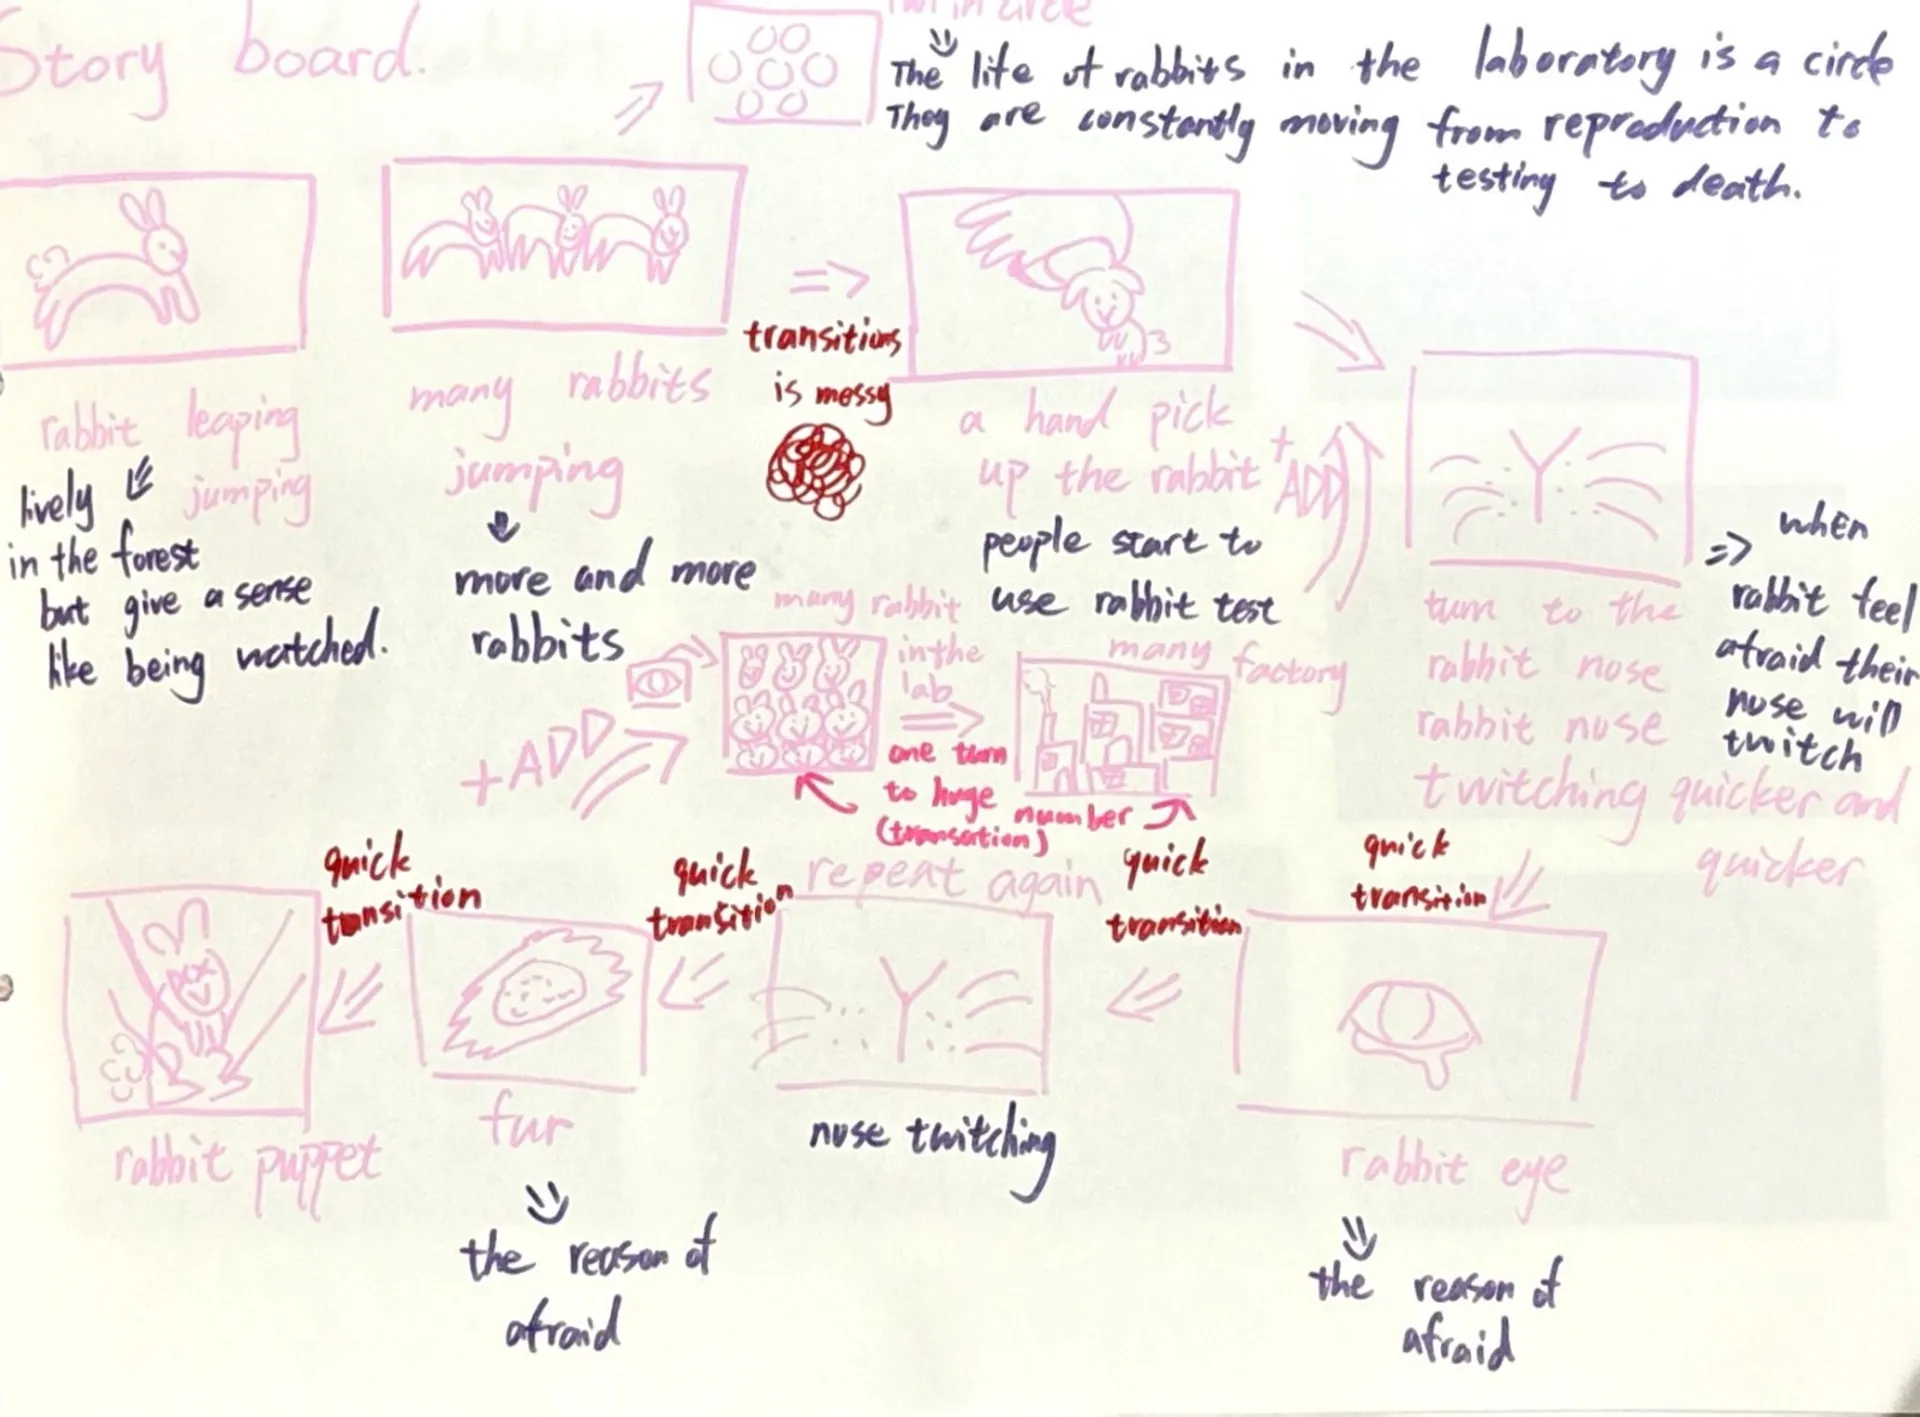 Story board.
run in circle
The life of rabbits in the laboratory is a circle
They are constantly moving from reproduction to
testing to death.
rabbit leaping
jumping
lively
in the forest
but give a sense
like being watched.
many rabbits
jumping
more and more
rabbits
transitions
is messy
a hand pick
up the rabbit
people start to
use rabbit test
+
ADD
turn to the
rabbit nose
rabbit nose
twitching quicker and
quicker
when
rabbit feel
afraid their
nose will
twitch
+ADD
many rabbit
in the
lab
many factory
one turn
to huge number
repeat again
quick
transition
rabbit eye
the reason of
afraid
quick
transition
nose twitching
quick
transition
fur
the reason of
afraid
quick
transition
rabbit puppet